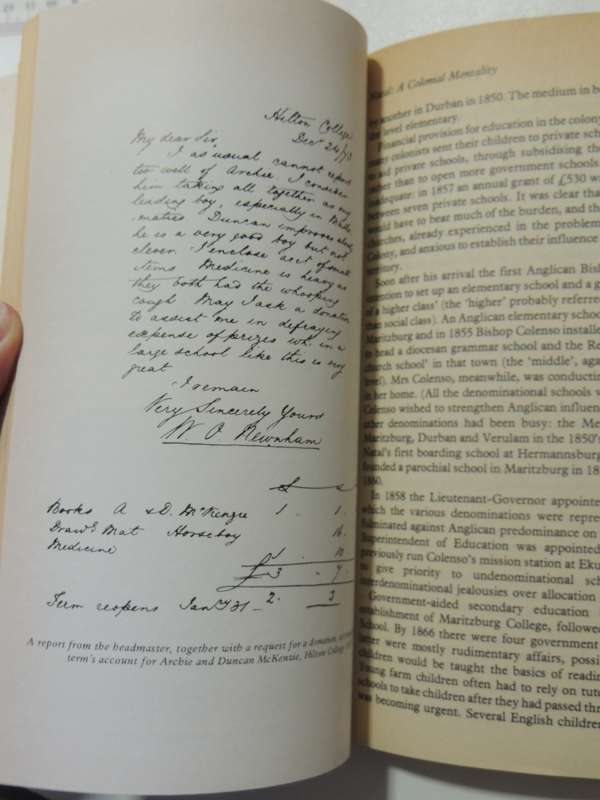 Hilton College
Decr 24/73
My dear Sir,
I as usual cannot report
too well of Archie I consider
him taking all together as my
leading boy, especially in Mathe
matics Duncan improves slowly
he is a very good boy but not
clever. I enclose acct of small
items Medicine is heavy as
they both had the whooping
cough May I ask a donation
to assist me in defraying
expense of prizes wh. in a
large school like this is very
great
I remain
Very Sincerely Yours
W. O. Newnham
£ s
Books A & D. McKenzie 1. 1.
Drawg Mat Horseboy 16.
Medicine 1. 10
£ 3 - 7.
Term reopens Jany 31 - 2. 3
A report from the headmaster, together with a request for a donation,
term's account for Archie and Duncan McKenzie, Hilton College
Natal: A Colonial Mentality
by another in Durban in 1850. The medium in
the level elementary.
Financial provision for education in the colony
many colonists sent their children to private
to aid private schools, through subsidising the
rather than to open more government schools
inadequate: in 1857 an annual grant of £530
between seven private schools. It was clear that
would have to bear much of the burden, and the
churches, already experienced in the problem
Colony, and anxious to establish their influence
territory.
Soon after his arrival the first Anglican
intention to set up an elementary school and a
of a higher class' (the 'higher' probably referred
than social class). An Anglican elementary school
Maritzburg and in 1855 Bishop Colenso installed
to head a diocesan grammar school and the
church school' in that town (the 'middle',
level). Mrs Colenso, meanwhile, was conducting
in her home. (All the denominational schools
Colenso wished to strengthen Anglican influence
other denominations had been busy: the
Maritzburg, Durban and Verulam in the 1850's
Natal's first boarding school at Hermannsburg
founded a parochial school in Maritzburg in
1860.
In 1858 the Lieutenant-Governor appointed
which the various denominations were
fulminated against Anglican predominance on
Superintendent of Education was appointed
previously run Colenso's mission station at
to give priority to undenominational
interdenominational jealousies over allocation
Government-aided secondary education
establishment of Maritzburg College, followed
School. By 1866 there were four government
latter were mostly rudimentary affairs,
children would be taught the basics of
Young farm children often had to rely on
schools to take children after they had passed
was becoming urgent. Several English children